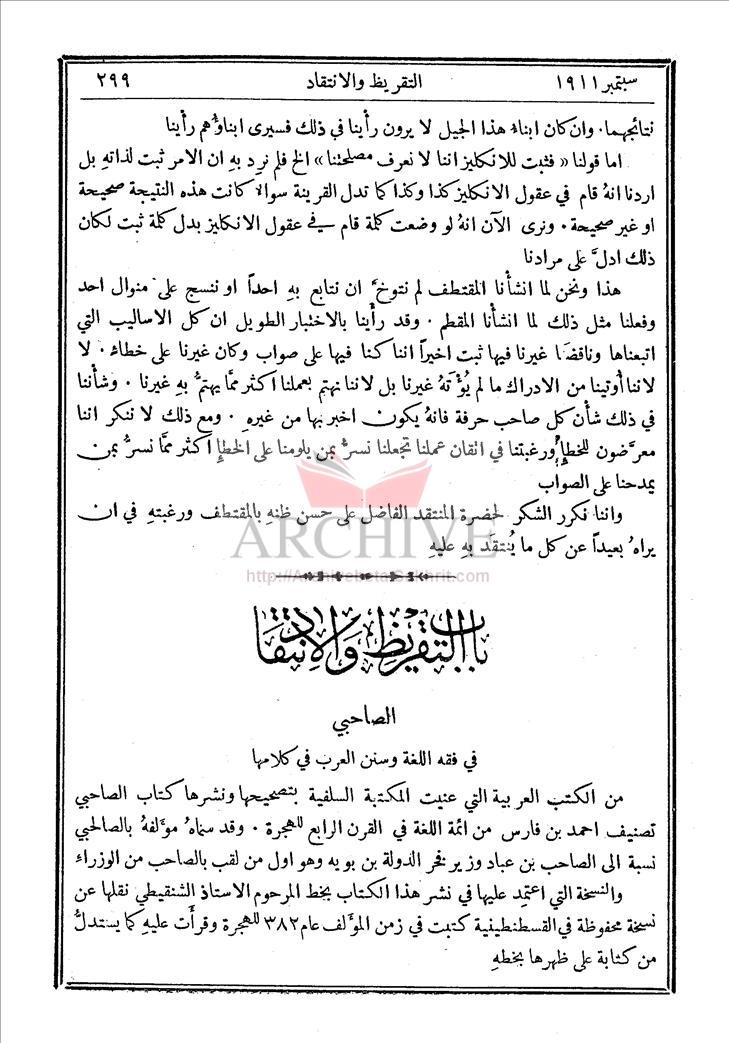 سبتمبر ١٩١١ التقريظ والانتقاد ٢٩٩
نتائجهما. وان كان ابناءُ هذا الجيل لا يرون رأينا في ذلك فسيرى ابناؤُهم رأينا
اما قولنا « فثبت للانكليز اننا لا نعرف مصلحتنا » الخ فلم نرد بهِ ان الامر ثبت لذاتهِ بل
اردنا انهُ قام في عقول الانكليز كذا وكذا كما تدل القرينة سوالا كانت هذه النتيجة صحيحة
او غير صحيحة. ونرى الآن انهُ لو وضعت كلمة قام في عقول الانكليز بدل كلمة ثبت لكان
ذلك ادلَّ على مرادنا
هذا ونحن لما انشأْنا المقتطف لم نتوخَّ ان نتابع بهِ احداً او ننسج على منوال احد
وفعلنا مثل ذلك لما انشأْنا المقطم. وقد رأينا بالاختبار الطويل ان كل الاساليب التي
اتبعناها وناقضنا غيرنا فيها ثبت اخيراً اننا كنا فيها على صواب وكان غيرنا على خطاءٍ. لا
لاننا أُوتينا من الادراك ما لم يُؤْتَهُ غيرنا بل لاننا نهتم بعملنا اكثر ممَّا يهتمُّ بهِ غيرنا. وشأْننا
في ذلك شأن كل صاحب حرفة فانهُ يكون اخبر بها من غيرهِ. ومع ذلك لا ننكر اننا
معرَّضون للخطإِ ورغبتنا في اتقان عملنا تجعلنا نسرُّ بمن يلومنا على الخطإِ اكثر ممَّا نسرُّ بمن
يمدحنا على الصواب
واننا نكرر الشكر لحضرة المنتقد الفاضل على حسن ظنهِ بالمقتطف ورغبتهِ في ان
يراهُ بعيداً عن كل ما يُنتقد بهِ عليهِ
ARCHIVE
http://Archivebeta.Sakhrit.com
باب التقريظ والانتقاد
الصاحبي
في فقه اللغة وسنن العرب في كلامها
من الكتب العربية التي عنيت المكتبة السلفية بتصحيحها ونشرها كتاب الصاحبي
تصنيف احمد بن فارس من ائمة اللغة في القرن الرابع للهجرة. وقد سماهُ مؤلفهُ بالصاحبي
نسبة الى الصاحب بن عباد وزير فخر الدولة بن بويه وهو اول من لقب بالصاحب من الوزراء
والنسخة التي اعتمد عليها في نشر هذا الكتاب بخط المرحوم الاستاذ الشنقيطي نقلها عن
نسخة محفوظة في القسطنطينية كتبت في زمن المؤَلف عام ٣٨٢ للهجرة وقرأَت عليهِ كما يستدلُّ
من كتابة على ظهرها بخطهِ